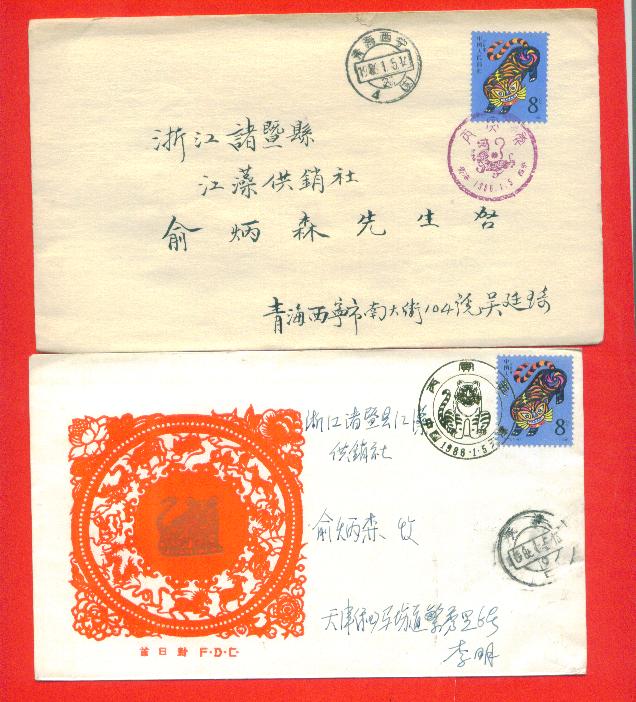 青海西宁
1986.1.5.1
4
中国人民邮政
8
丙寅
1986.1.5
浙江諸暨縣
江藻供銷社
俞炳森先生啓
青海西寧市南大街104號吴廷琦
丙寅
中国
1986·1·5
中国人民邮政
8
浙江诸暨县江藻
供销社
俞炳森 收
天津
天津和平
李明
首日封 F·D·C·